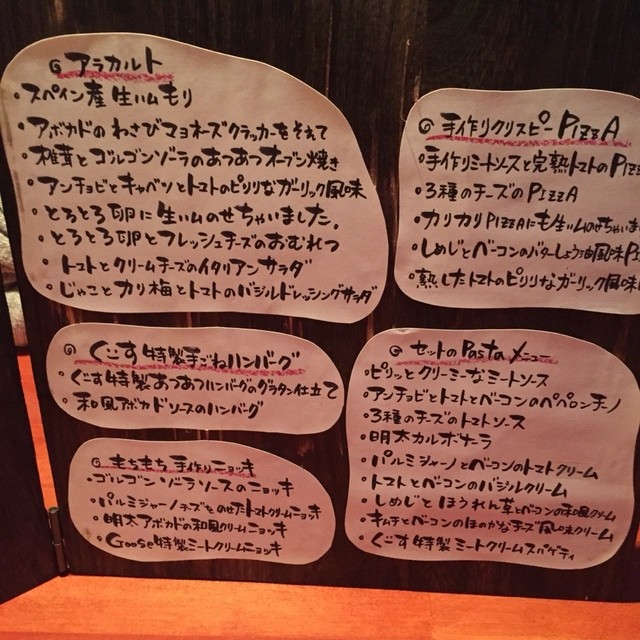 ◎ アラカルト
・スペイン産 生ハムもり
・アボカドのわさびマヨネーズクラッカーをそえて
・椎茸とゴルゴンゾーラのあつあつオーブン焼き
・アンチョビとキャベツとトマトのピリリなガーリック風味
・とろとろ卵に生ハムのせちゃいました。
・とろとろ卵とフレッシュチーズのおむれつ
・トマトとクリームチーズのイタリアンサラダ
・じゃことカリ梅とトマトのバジルドレッシングサラダ
◎ ぐーす特製手ごねハンバーグ
・ぐーす特製あつあつハンバーグのグラタン仕立て
・和風アボカドソースのハンバーグ
◎ もちもち手作りニョッキ
・ゴルゴンゾーラソースのニョッキ
・パルミジャーノチーズをのせたトマトクリームニョッキ
・明太アボカドの和風クリームニョッキ
・Goose特製ミートクリームニョッキ
◎ 手作りクリスピーPIZZA
・手作りミートソースと完熟トマトのPIZZ
・3種のチーズのPIZZA
・カリカリPIZZAにも生ハムのせちゃいま
・しめじとベーコンのバターしょう油風味P
・熟したトマトのピリリなガーリック風味
◎ セットのPastaメニュー
・ピリッとクリーミーなミートソース
・アンチョビとトマトとベーコンのペペロンチーノ
・3種のチーズのトマトソース
・明太カルボナーラ
・パルミジャーノとベーコンのトマトクリーム
・トマトとベーコンのバジルクリーム
・しめじとほうれん草とベーコンの和風クリーム
・キムチとベーコンのほのかなチーズ風味クリーム
・ぐーす特製ミートクリームスパゲティ